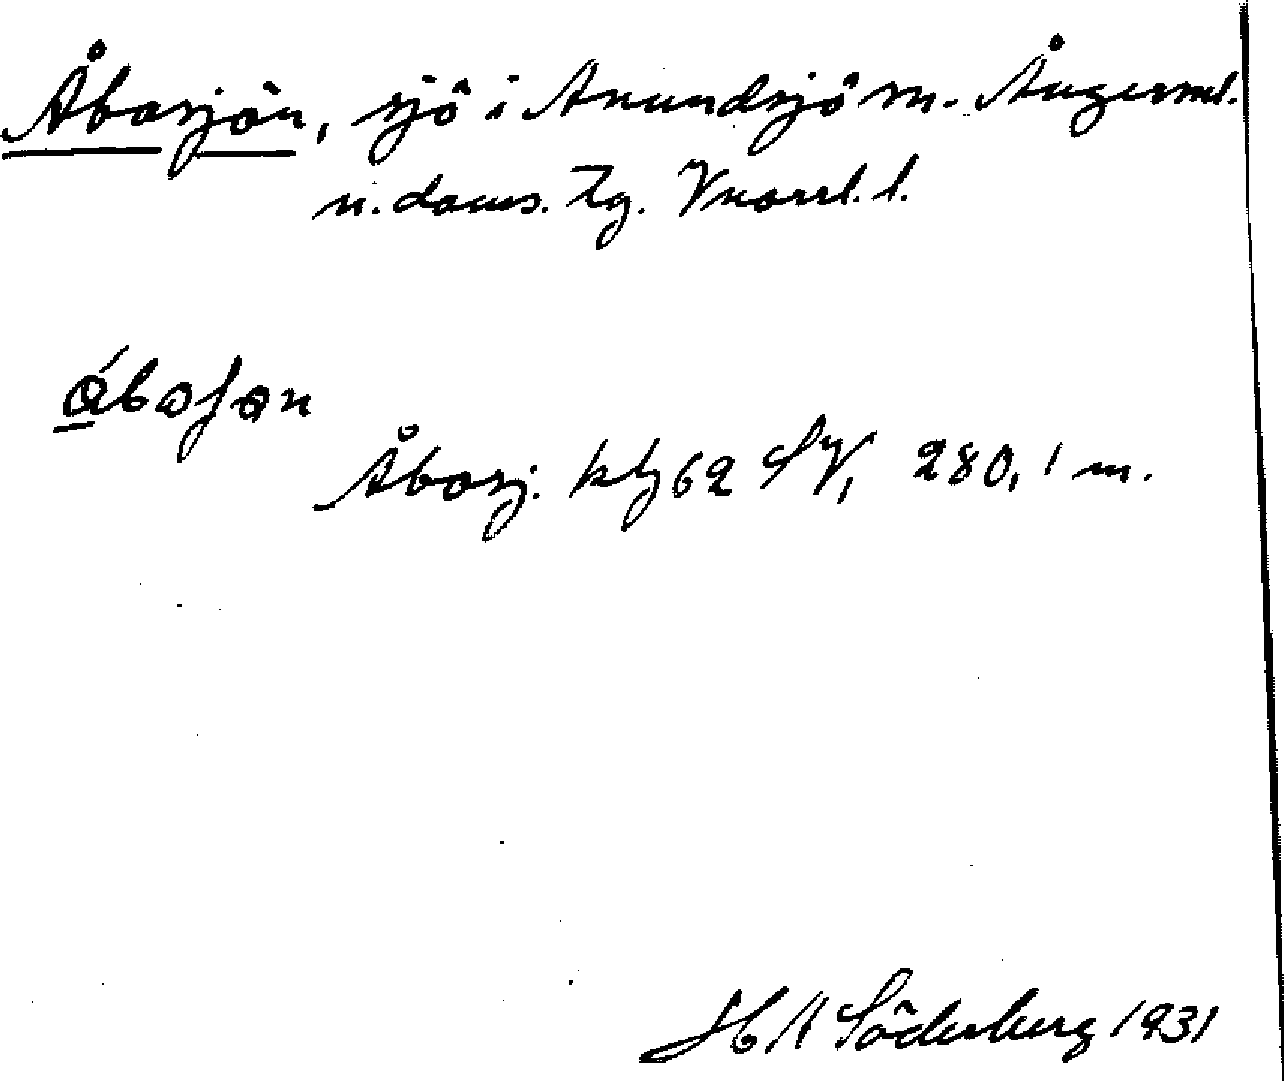 Åbosjön, sjö i Anundsjö sn. Ångerml.
n. doms. Tg. Vnorrl. l.
Åbosj. kbl 62 SV, 280,1 m.
H A Söderberg 1931